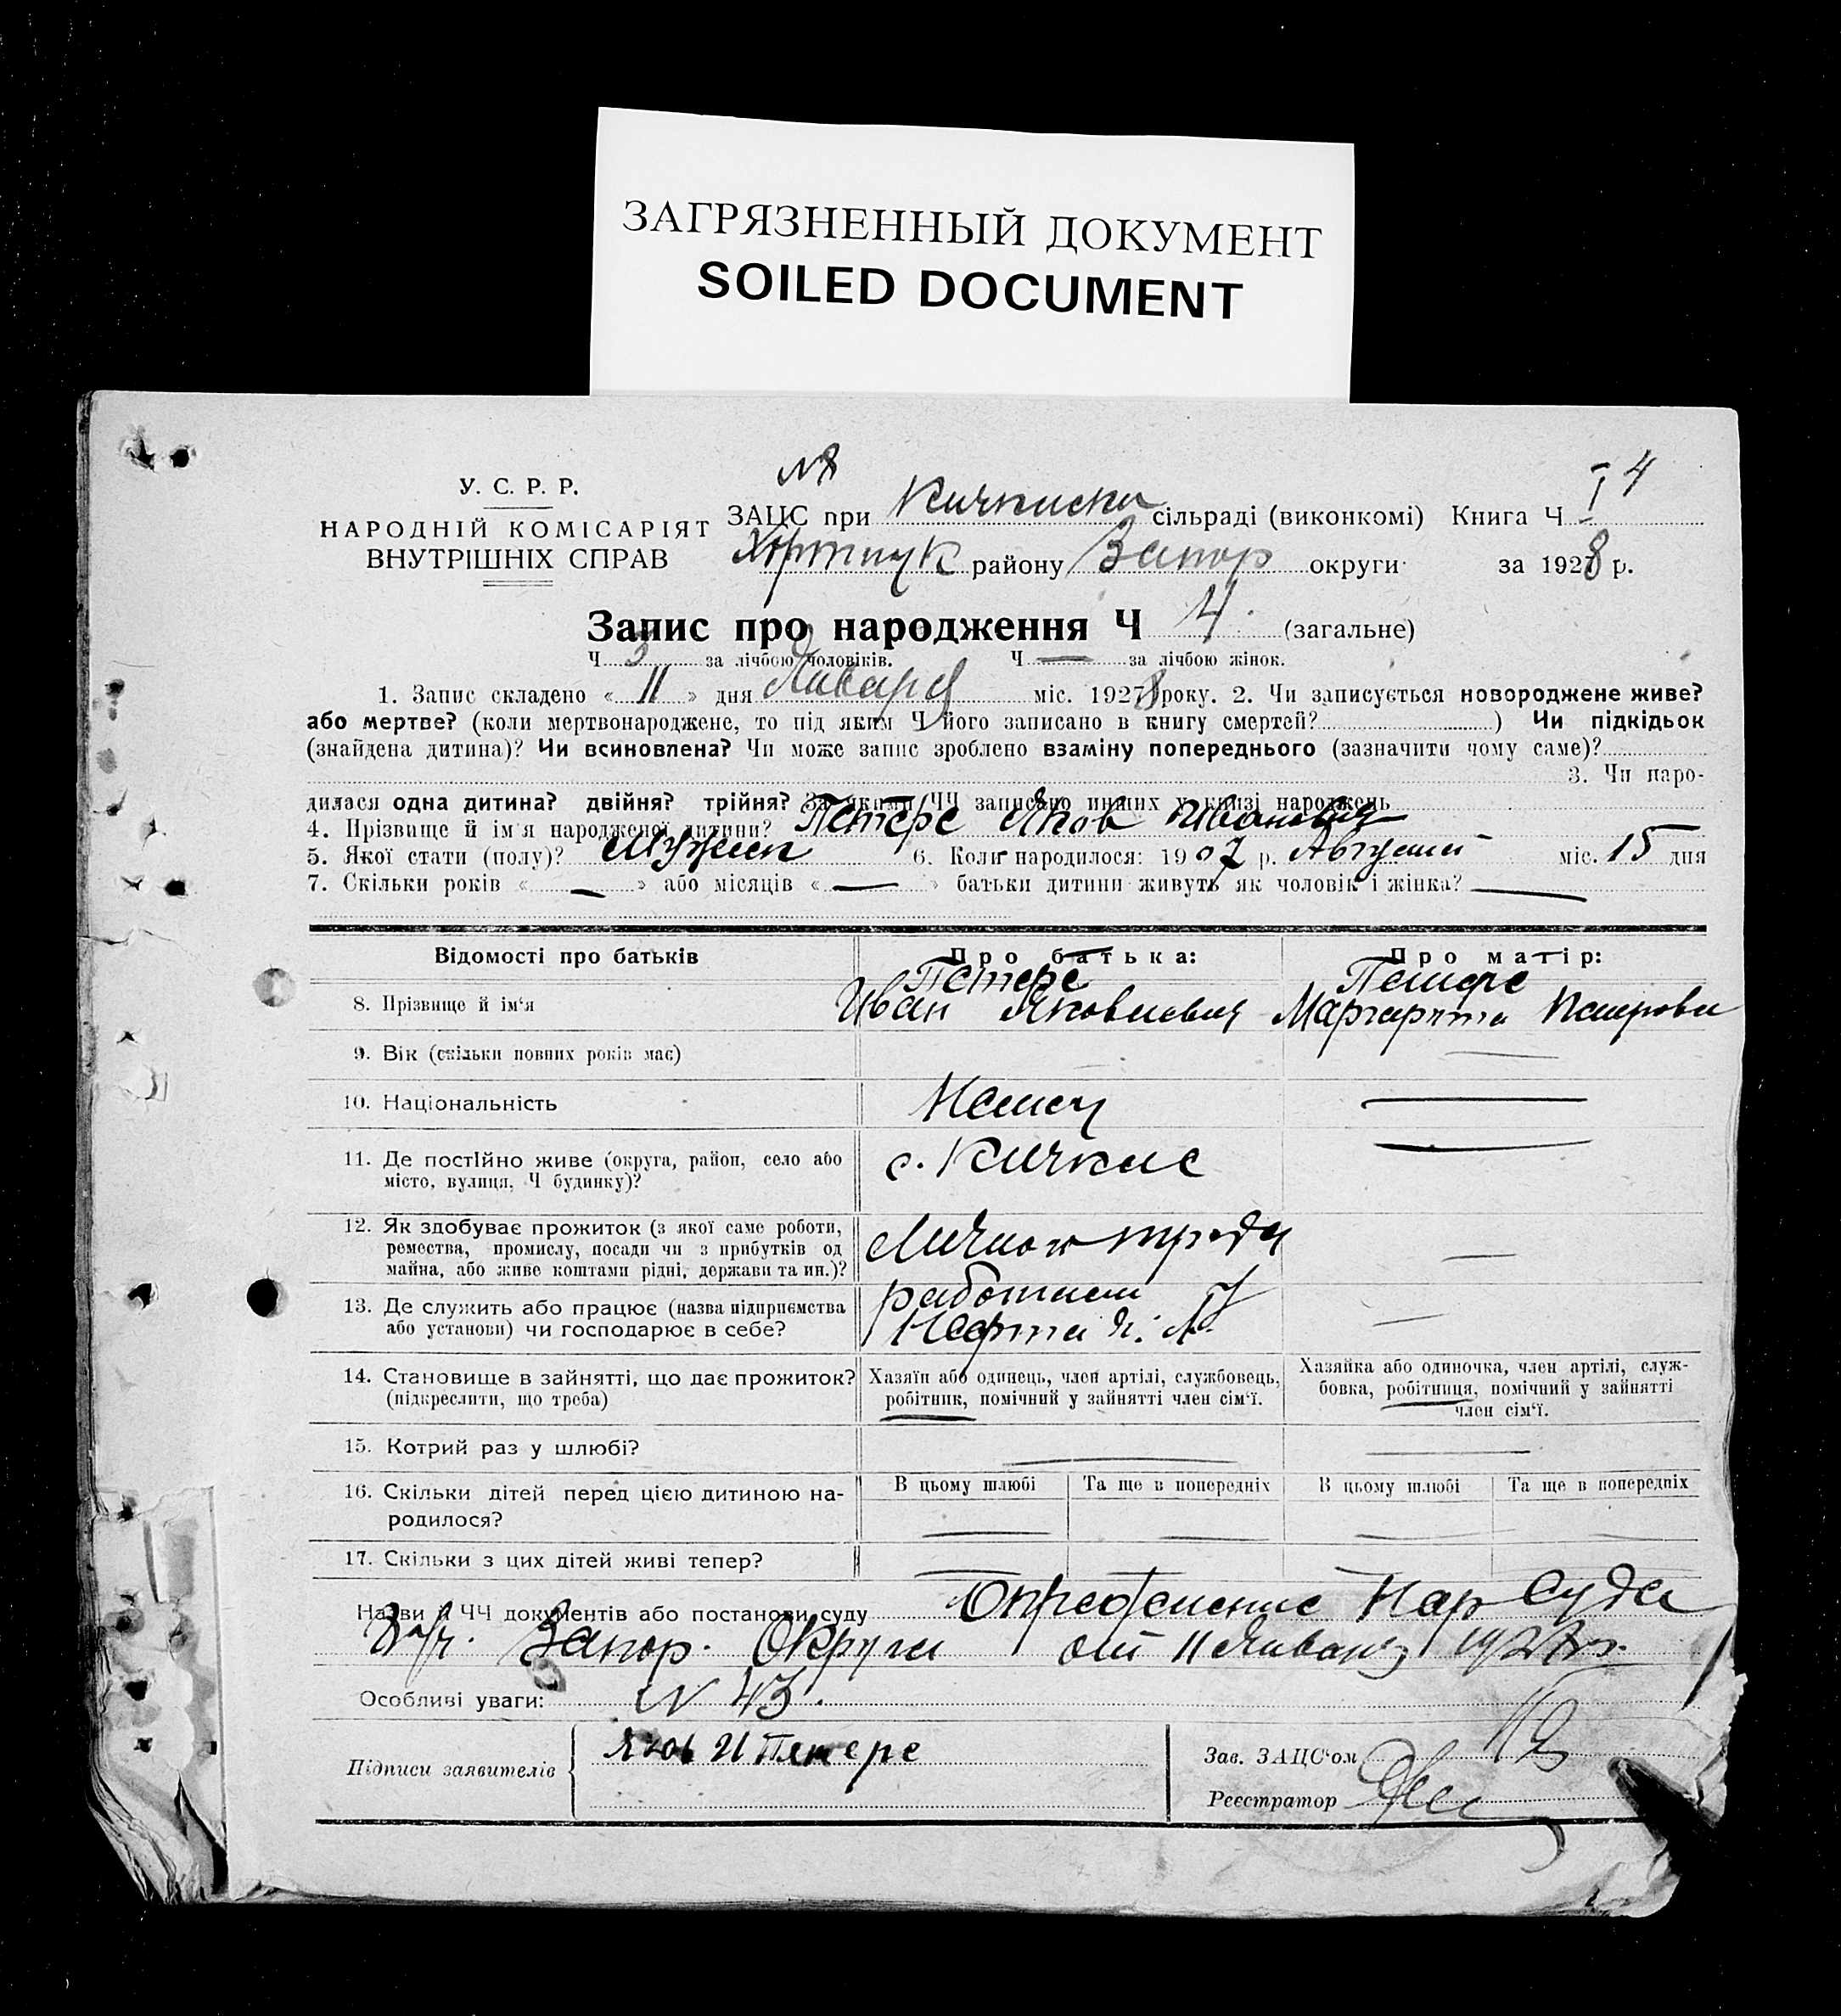 ЗАГРЯЗНЕННЫЙ ДОКУМЕНТ
SOILED DOCUMENT
У. С. Р. Р.
НАРОДНІЙ КОМІСАРІЯТ
ВНУТРІШНІХ СПРАВ
№8
I 4
ЗАЦС при Кичкиски сільраді (виконкомі) Книга Ч
району Запор округи за 1928 р.
Запис про народження Ч 4. (загальне)
Ч 3 за лічбою чоловіків. Ч — за лічбою жінок.
1. Запис складено « 11 » дня Января міс. 1928 року. 2. Чи записується новороджене живе?
або мертве? (коли мертвонароджене, то під яким Ч його записано в книгу смертей? ) Чи підкідьок
(знайдена дитина)? Чи всиновлена? Чи може запис зроблено взаміну попереднього (зазначити чому саме)?
3. Чи наро-
дилася одна дитина? двійня? трійня? За якими ЧЧ записано инших у книзі народжень
4. Прізвище й ім'я народженої дитини? Петерс Яков Иванович
5. Якої стати (полу)? Мужск 6. Коли народилося: 1907 р. Август міс. 15 дня
7. Скільки років « — » або місяців « — » батьки дитини живуть як чоловік і жінка? —
Відомості про батьків Про батька: Про матір:
Петерс Петерс
8. Прізвище й ім'я Иван Яковлевич Маргарита Петровн
9. Вік (скільки повних років має) —
10. Національність Немец —
11. Де постійно живе (округа, район, село або с. Кичкас —
місто, вулиця, Ч будинку)?
12. Як здобуває прожиток (з якої саме роботи, Личного труда —
ремества, промислу, посади чи з прибутків од
майна, або живе коштами рідні, держави та ин.)?
13. Де служить або працює (назва підприємства работает у —
або установи) чи господарює в себе?
14. Становище в зайнятті, що дає прожиток? Хазяїн або одинець, член артілі, службовець, Хазяйка або одиночка, член артілі, служ-
(підкреслити, що треба) робітник, помічний у зайнятті член сім'ї. бовка, робітниця, помічний у зайнятті
член сім'ї.
15. Котрий раз у шлюбі? — —
16. Скільки дітей перед цією дитиною на- В цьому шлюбі Та ще в попередніх В цьому шлюбі Та ще в попередніх
родилося? — — — —
17. Скільки з цих дітей живі тепер?
Назви й ЧЧ документів або постанови суду Определение Нар Суда
Запор. Округи от 11 Января
Особливі уваги: № 43.
Підписи заявителів Яков И Петерс
Зав. ЗАЦС'ом
Реєстратор